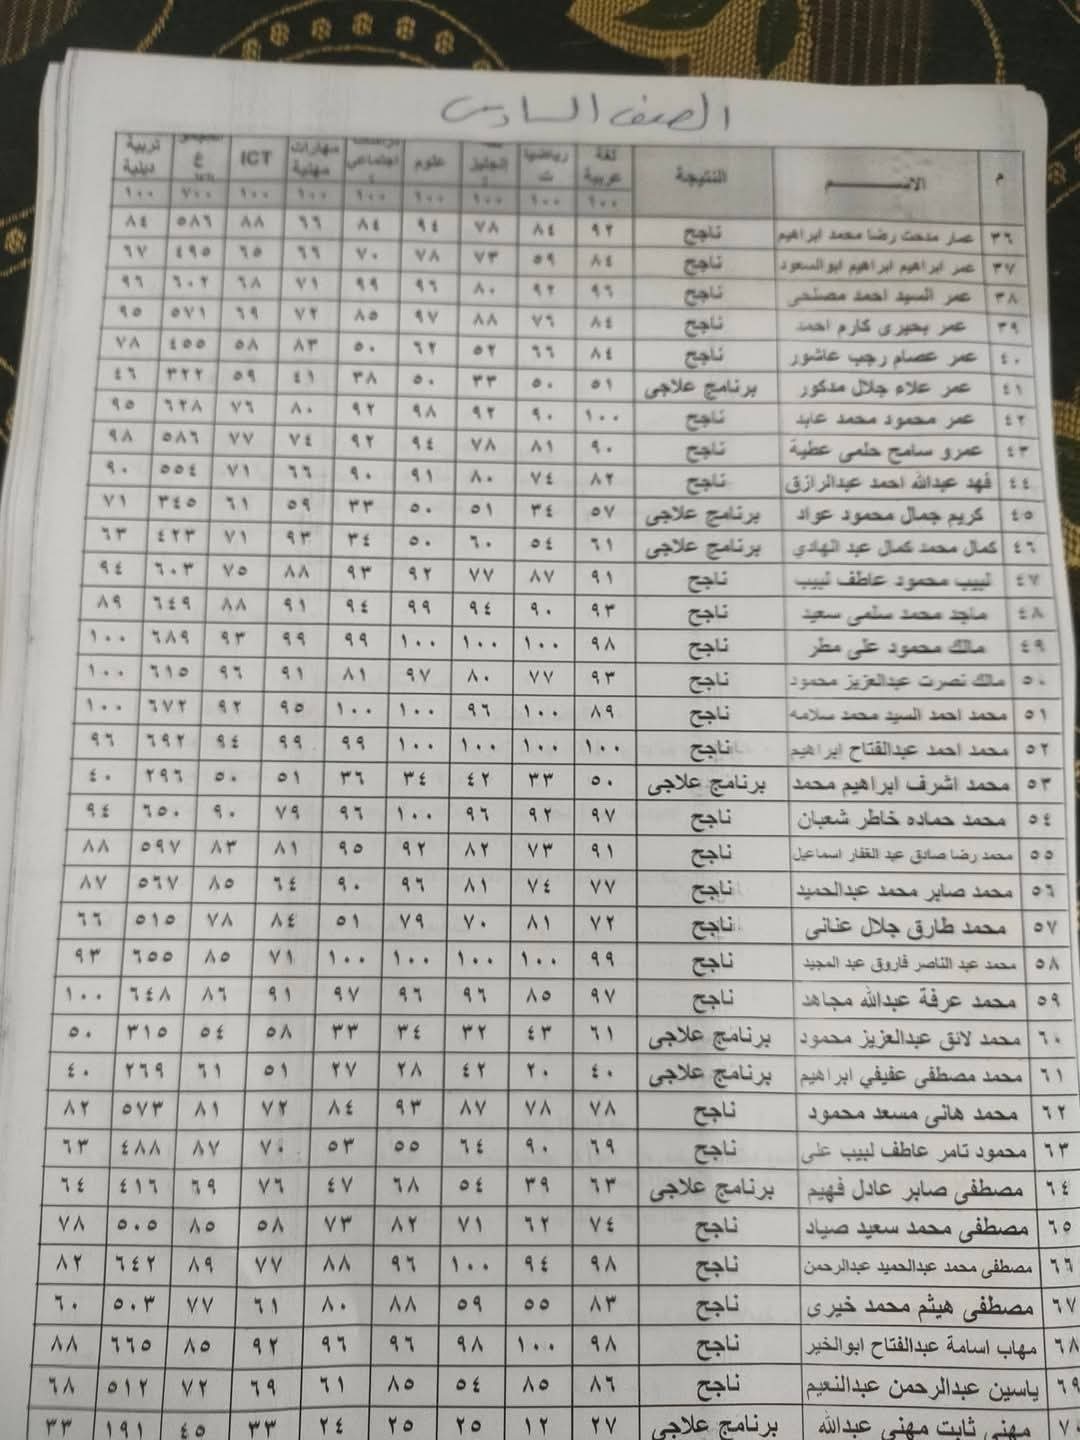 الصف السادس
م الاسم النتيجة لغة عربية رياضيات انجليز علوم اجتماعي مهارات مهنية ICT ع تربية دينية
١٠٠ ١٠٠ ١٠٠ ١٠٠ ١٠٠ ١٠٠ ١٠٠ ٧٠٠ ١٠٠
٣٦ عمار مدحت رضا محمد ابراهيم ناجح ٩٢ ٨٤ ٧٨ ٩٤ ٨٤ ٦٦ ٨٨ ٥٨٦ ٨٤
٣٧ عمر ابراهيم ابراهيم ابوالسعود ناجح ٨٤ ٥٩ ٧٣ ٧٨ ٧٠ ٦٦ ٦٥ ٤٩٥ ٦٧
٣٨ عمر السيد احمد مصلحى ناجح ٩٦ ٩٢ ٨٠ ٩٦ ٩٩ ٧١ ٦٨ ٦٠٢ ٩٦
٣٩ عمر بحيرى كارم احمد ناجح ٨٤ ٧٦ ٨٨ ٩٧ ٨٥ ٧٢ ٦٩ ٥٧١ ٩٥
٤٠ عمر عصام رجب عاشور ناجح ٨٤ ٦٦ ٥٢ ٦٢ ٥٠ ٨٣ ٥٨ ٤٥٥ ٧٨
٤١ عمر علاء جلال مدكور برنامج علاجى ٥١ ٥٠ ٣٣ ٥٠ ٣٨ ٤١ ٥٩ ٣٢٢ ٤٦
٤٢ عمر محمود محمد عابد ناجح ١٠٠ ٩٠ ٩٢ ٩٨ ٩٢ ٨٠ ٧٦ ٦٢٨ ٩٥
٤٣ عمرو سامح حلمى عطية ناجح ٩٠ ٨١ ٧٨ ٩٤ ٩٢ ٧٤ ٧٧ ٥٨٦ ٩٨
٤٤ فهد عبدالله احمد عبدالرازق ناجح ٨٢ ٧٤ ٨٠ ٩١ ٩٠ ٦٦ ٧١ ٥٥٤ ٩٠
٤٥ كريم جمال محمود عواد برنامج علاجى ٥٧ ٣٤ ٥١ ٥٠ ٣٣ ٥٩ ٦١ ٣٤٥ ٧١
٤٦ كمال محمد كمال عبد الهادي برنامج علاجى ٦١ ٥٤ ٦٠ ٥٠ ٣٤ ٩٣ ٧١ ٤٢٣ ٦٣
٤٧ لبيب محمود عاطف لبيب ناجح ٩١ ٨٧ ٧٧ ٩٢ ٩٣ ٨٨ ٧٥ ٦٠٣ ٩٤
٤٨ ماجد محمد سلمى سعيد ناجح ٩٣ ٩٠ ٩٤ ٩٩ ٩٤ ٩١ ٨٨ ٦٤٩ ٨٩
٤٩ مالك محمود على مطر ناجح ٩٨ ١٠٠ ١٠٠ ١٠٠ ٩٩ ٩٩ ٩٣ ٦٨٩ ١٠٠
٥٠ مالك نصرت عبدالعزيز محمود ناجح ٩٣ ٧٧ ٨٠ ٩٧ ٨١ ٩١ ٩٦ ٦١٥ ١٠٠
٥١ محمد احمد السيد محمد سلامه ناجح ٨٩ ١٠٠ ٩٦ ١٠٠ ١٠٠ ٩٥ ٩٢ ٦٧٢ ١٠٠
٥٢ محمد احمد عبدالفتاح ابراهيم ناجح ١٠٠ ١٠٠ ١٠٠ ١٠٠ ٩٩ ٩٩ ٩٤ ٦٩٢ ٩٦
٥٣ محمد اشرف ابراهيم محمد برنامج علاجى ٥٠ ٣٣ ٤٢ ٣٤ ٣٦ ٥١ ٥٠ ٢٩٦ ٤٠
٥٤ محمد حماده خاطر شعبان ناجح ٩٧ ٩٢ ٩٦ ١٠٠ ٩٦ ٧٩ ٩٠ ٦٥٠ ٩٤
٥٥ محمد رضا صادق عبد الغفار اسماعيل ناجح ٩١ ٧٣ ٨٢ ٩٢ ٩٥ ٨١ ٨٣ ٥٩٧ ٨٨
٥٦ محمد صابر محمد عبدالحميد ناجح ٧٧ ٧٤ ٨١ ٩٦ ٩٠ ٦٤ ٨٥ ٥٦٧ ٨٧
٥٧ محمد طارق جلال عنانى ناجح ٧٢ ٨١ ٧٠ ٧٩ ٥١ ٨٤ ٧٨ ٥١٥ ٦٦
٥٨ محمد عبد الناصر فاروق عبد المجيد ناجح ٩٩ ١٠٠ ١٠٠ ١٠٠ ١٠٠ ٧١ ٨٥ ٦٥٥ ٩٣
٥٩ محمد عرفة عبدالله مجاهد ناجح ٩٧ ٨٥ ٩٦ ٩٦ ٩٧ ٩١ ٨٦ ٦٤٨ ١٠٠
٦٠ محمد لائق عبدالعزيز محمود برنامج علاجى ٦١ ٤٣ ٣٢ ٣٤ ٣٣ ٥٨ ٥٤ ٣١٥ ٥٠
٦١ محمد مصطفى عفيفي ابراهيم برنامج علاجى ٤٠ ٢٠ ٤٢ ٢٨ ٢٧ ٥١ ٦١ ٢٦٩ ٤٠
٦٢ محمد هانى مسعد محمود ناجح ٧٨ ٧٨ ٨٧ ٩٣ ٨٤ ٧٢ ٨١ ٥٧٣ ٨٢
٦٣ محمود تامر عاطف لبيب على ناجح ٦٩ ٩٠ ٦٤ ٥٥ ٥٣ ٧٠ ٨٧ ٤٨٨ ٦٣
٦٤ مصطفى صابر عادل فهيم برنامج علاجى ٦٣ ٣٩ ٥٤ ٦٨ ٤٧ ٧٦ ٦٩ ٤١٦ ٦٤
٦٥ مصطفى محمد سعيد صياد ناجح ٧٤ ٦٢ ٧١ ٨٢ ٧٣ ٥٨ ٨٥ ٥٠٥ ٧٨
٦٦ مصطفى محمد عبدالحميد عبدالرحمن ناجح ٩٨ ٩٤ ١٠٠ ٩٦ ٨٨ ٧٧ ٨٩ ٦٤٢ ٨٢
٦٧ مصطفى هيثم محمد خيرى ناجح ٨٣ ٥٥ ٥٩ ٨٨ ٨٠ ٦١ ٧٧ ٥٠٣ ٦٠
٦٨ مهاب اسامة عبدالفتاح ابوالخير ناجح ٩٨ ١٠٠ ٩٨ ٩٦ ٩٦ ٩٢ ٨٥ ٦٦٥ ٨٨
٦٩ ياسين عبدالرحمن عبدالنعيم ناجح ٨٦ ٨٥ ٥٤ ٨٥ ٦١ ٦٩ ٧٢ ٥١٢ ٦٨
٧٠ مهنى ثابت مهنى عبدالله برنامج علاجى ٢٧ ١٢ ٢٥ ٢٥ ٢٤ ٣٣ ٤٥ ١٩١ ٣٣